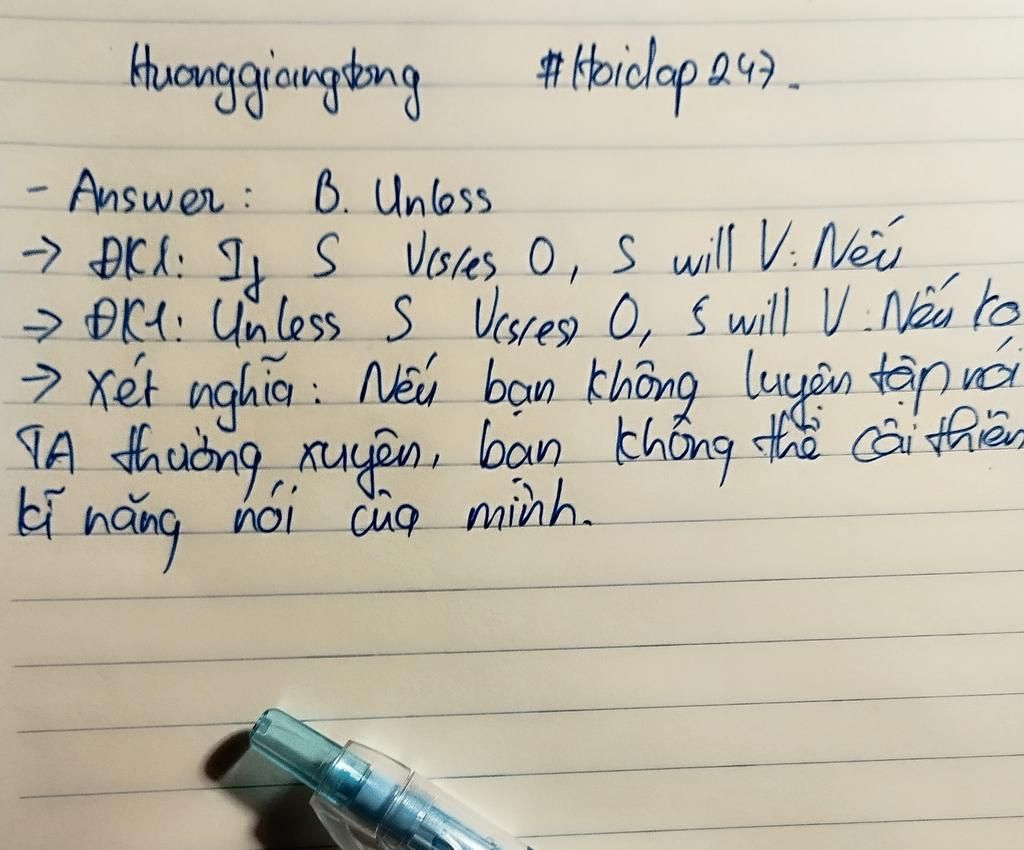 Huonggiangtong #Hoidap247.
- Answer: B. Unless
→ ĐK1: If S V(s/es O, S will V: Nếu
→ ĐK1: Unless S V(s/es) O, S will V: Nếu ko
→ Xét nghĩa: Nếu bạn không luyện tập nói
TA thường xuyên, bạn không thể cải thiện
kĩ năng nói của mình.